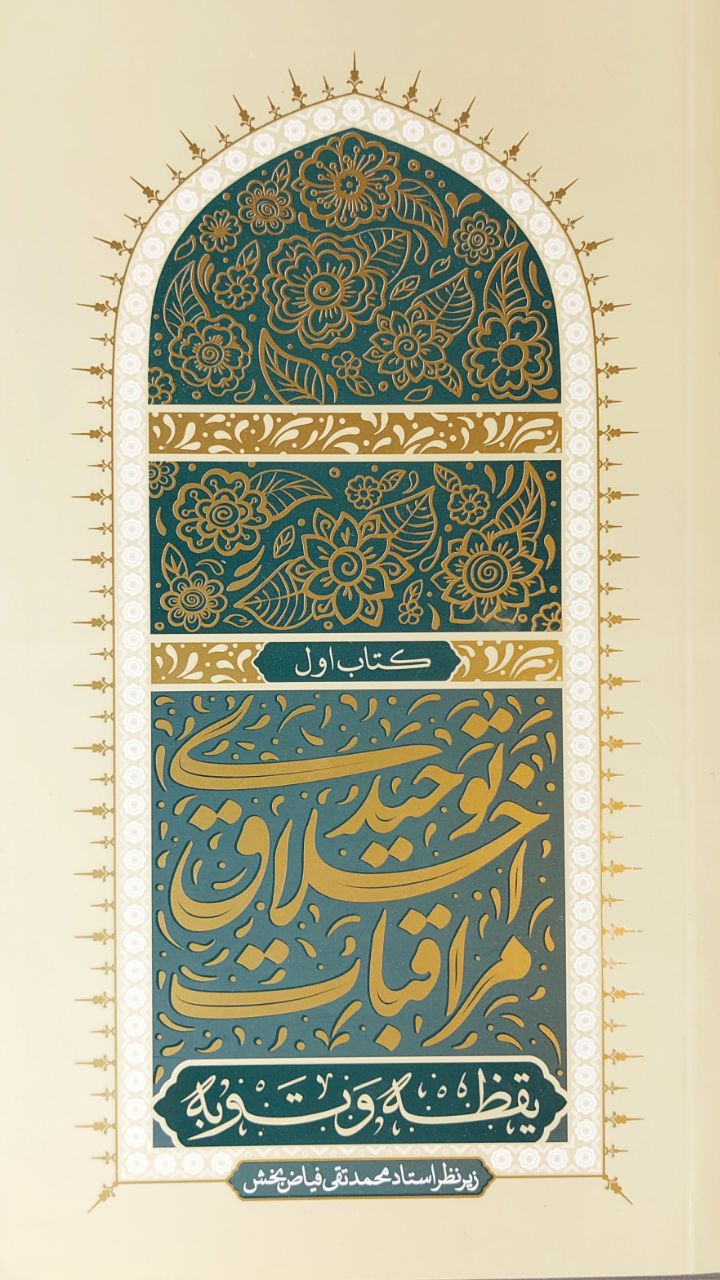 کتاب اول
توحیدی
اخلاق
مراقبات
یقظه و توبه
زیر نظر استاد محمد تقی فیاض بخش